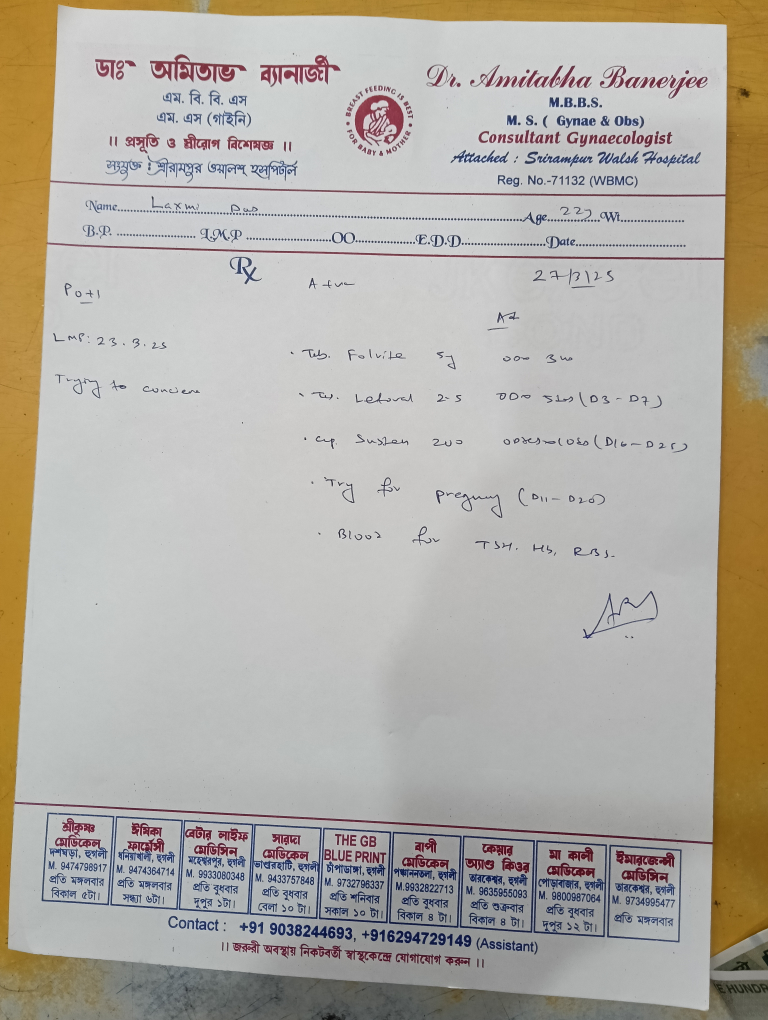 ডাঃ অমিতাভ ব্যানার্জী
এম. বি. বি. এস
এম. এস (গাইনি)
।। প্রসূতি ও স্ত্রীরোগ বিশেষজ্ঞ ।।
সংযুক্ত : শ্রীরামপুর ওয়ালশ্ হসপিটাল
BREAST FEEDING IS BEST
FOR BABY & MOTHER
Dr. Amitabha Banerjee
M.B.B.S.
M. S. ( Gynae & Obs)
Consultant Gynaecologist
Attached : Srirampur Walsh Hospital
Reg. No.-71132 (WBMC)
Name Laxmi Das Age 22y Wt
B.P. L.M.P OO E.D.D. Date
Rx
27/3/25
P 0+1
LMP: 23.3.25
Trying to conceive
• Tab. Folvite 5g
• Tab. Letoval 2.5 (D3-D7)
• Cap. Susten 200 (D16-D25)
• Try for pregnancy (D11-D20)
• Blood for TSH, Hb, RBS.
শ্রীকৃষ্ণ মেডিকেল
দশঘড়া, হুগলী
M. 9474798917
প্রতি মঙ্গলবার
বিকাল ৫টা।
ঈষিকা ফার্মেসী
ধনিয়াখালী, হুগলী
M. 9474364714
প্রতি মঙ্গলবার
সন্ধ্যা ৬টা।
বেটার লাইফ মেডিসিন
মহেশ্বরপুর, হুগলী
M. 9933080348
প্রতি বুধবার
দুপুর ১টা।
সারদা মেডিকেল
ভাণ্ডারহাটি, হুগলী
M. 9433757848
প্রতি বুধবার
বেলা ১০ টা।
THE GB BLUE PRINT
চাঁপাডাঙ্গা, হুগলী
M. 9732796337
প্রতি শনিবার
সকাল ১০ টা।
বাপী মেডিকেল
পঞ্চাননতলা, হুগলী
M. 9932822713
প্রতি বুধবার
বিকাল ৪ টা।
কেয়ার অ্যাণ্ড কিওর
তারকেশ্বর, হুগলী
M. 9635955093
প্রতি শুক্রবার
বিকাল ৪ টা।
মা কালী মেডিকেল
পোড়াবাজার, হুগলী
M. 9800987064
প্রতি বুধবার
দুপুর ১২ টা।
ইমারজেন্সী মেডিসিন
তারকেশ্বর, হুগলী
M. 9734995477
প্রতি মঙ্গলবার
Contact : +91 9038244693, +916294729149 (Assistant)
।। জরুরী অবস্থায় নিকটবর্তী স্বাস্থ্যকেন্দ্রে যোগাযোগ করুন ।।